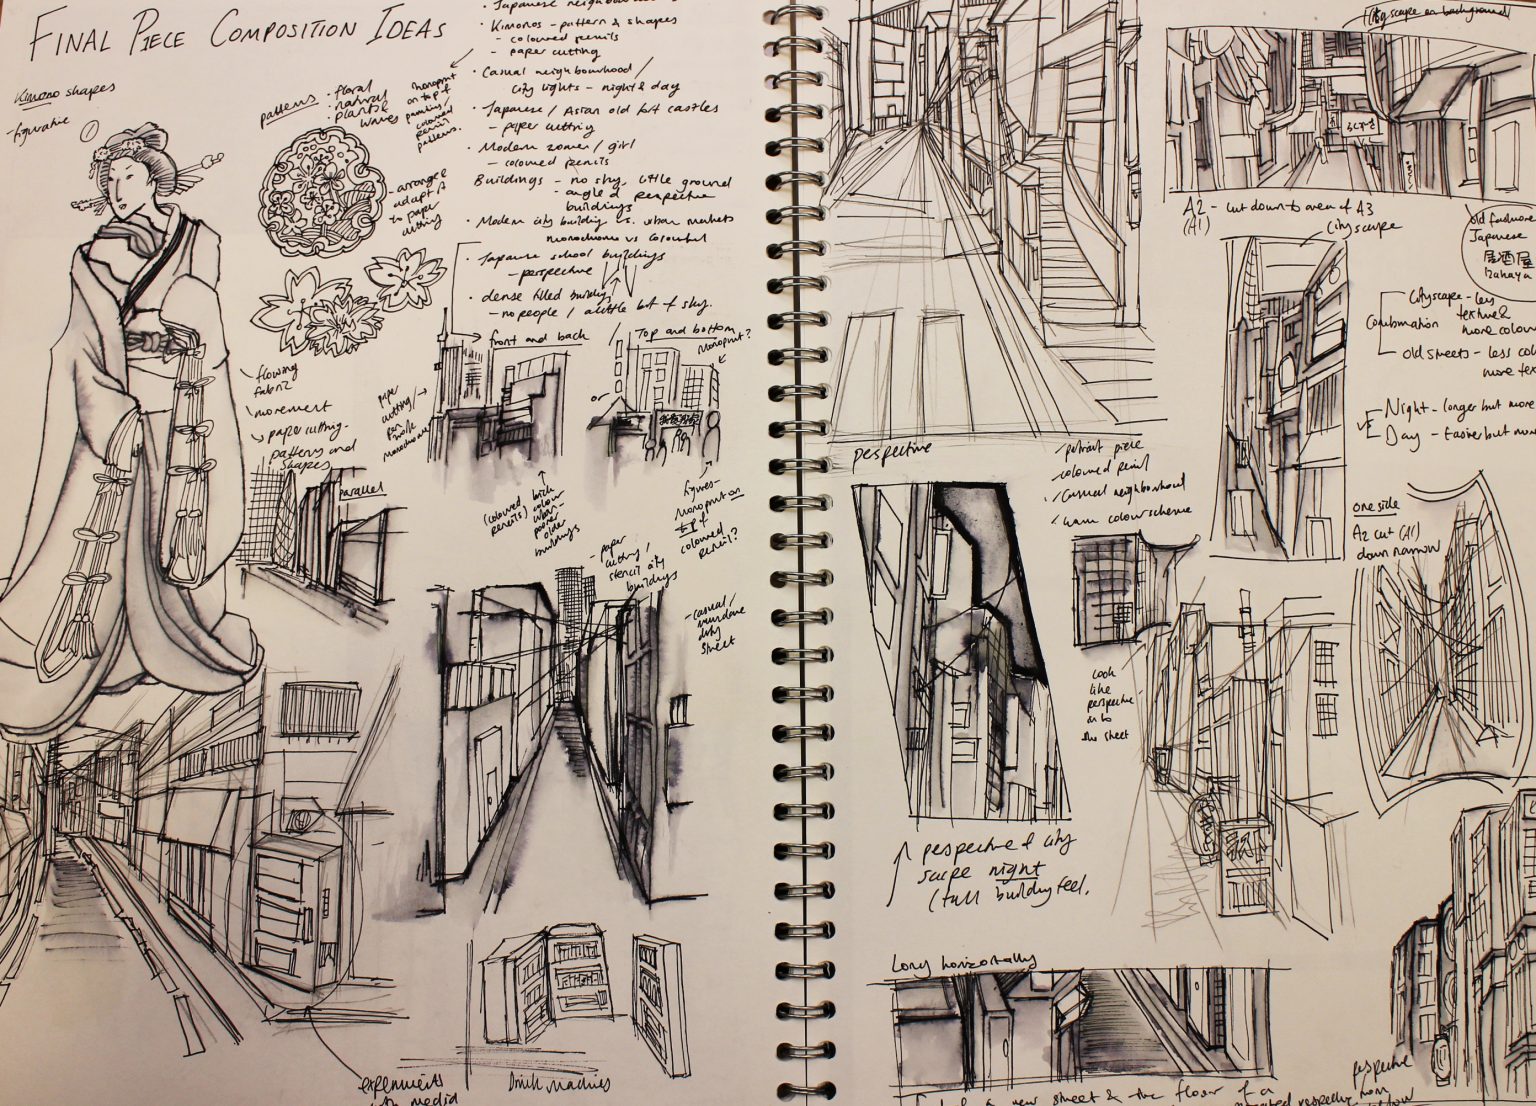 FINAL PIECE COMPOSITION IDEAS
Kimono shapes
- figurative
1
patterns
• floral
• natural
• plants
waves
monoprint
on top of
painting /
coloured
pencil
patterns.
- arrange &
adapt
to paper
cutting
flowing
fabric
movement
paper cutting -
patterns and
shapes
parallel
• Kimonos - pattern & shapes
- coloured pencils
- paper cutting
• Casual neighbourhood /
city lights - night & day
• Japanese / Asian old
castles
- paper cutting
• Modern
/ girl
- coloured pencils
Buildings - no sky, little ground
- angled perspective
buildings
• Modern city building vs. urban markets
monochrome vs colourful
• Japanese school buildings
- perspective
• dense filled buildings
- no people / a little bit of sky.
front and back
Top and bottom
monoprint?
or
paper
cutting /
pen
work
monochrome
(coloured
pencils)
colour
older
buildings
figures -
monoprint on
top of
coloured
pencil?
- paper
cutting /
stencil city
buildings
- casual /
mundane
street
experiments
media
Drink Machines
perspective
portrait piece
coloured pencil
casual neighbourhood
warm colour scheme
cityscape on background
A2 - cut down to area of A3
(A1)
Cityscape
old fashioned
Japanese
居酒屋
Izakaya
Combination
Cityscape - less
texture &
more colour
old streets - less
more
Night - longer but more
Day - Easier but
one side
A2 cut (A1)
down narrow
look
like
perspective
in to
the street
perspective of city
scape night
(tall building feel.
Long horizontally
street & the floor of a
perspective